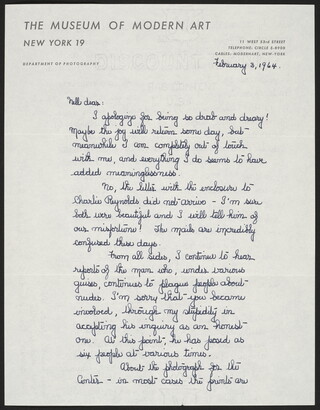 THE MUSEUM OF MODERN ART
NEW YORK 19
11 WEST 53rd STREET
TELEPHONE: CIRCLE 5-8900
CABLES: MODERNART, NEW-YORK
DEPARTMENT OF PHOTOGRAPHY
February 3, 1964.
Nell dear:
I apologize for being so drab and dreary!
Maybe the joy will return some day, but
meanwhile I am completely out of touch
with me, and everything I do seems to have
added meaninglessness.
No, the letter with the enclosure to
Charlie Reynolds did not arrive - I'm sure
both were beautiful and I will tell him of
our misfortune! The mails are incredibly
confused these days.
From all sides, I continue to hear
reports of the man who, under various
guises, continues to plague people about
nudes. I'm sorry that you became
involved, through my stupidity in
accepting his inquiry as an honest
one. At this point, he has posed as
six people at various times.
About the photograph for the
Center - in most cases the prints are